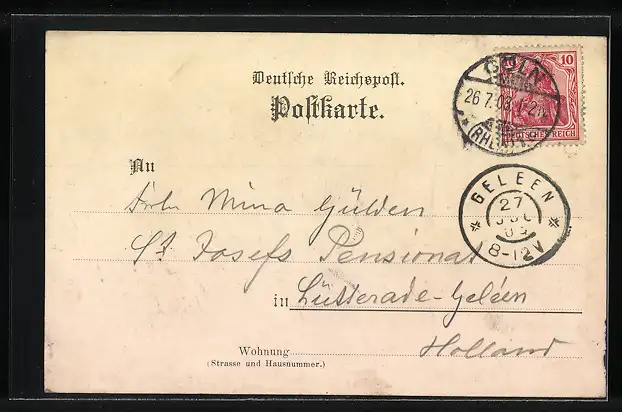 Deutsche Reichspost.
Postkarte.
10
DEUTSCHES REICH
CÖLN
26.7.03.
(RHEIN)
GELEEN
27
JUL
03
8-12V
An
Frln Mina Gülden
St Josefs Pensionat
in Lütterade-Geléen
Wohnung
Holland
(Strasse und Hausnummer.)